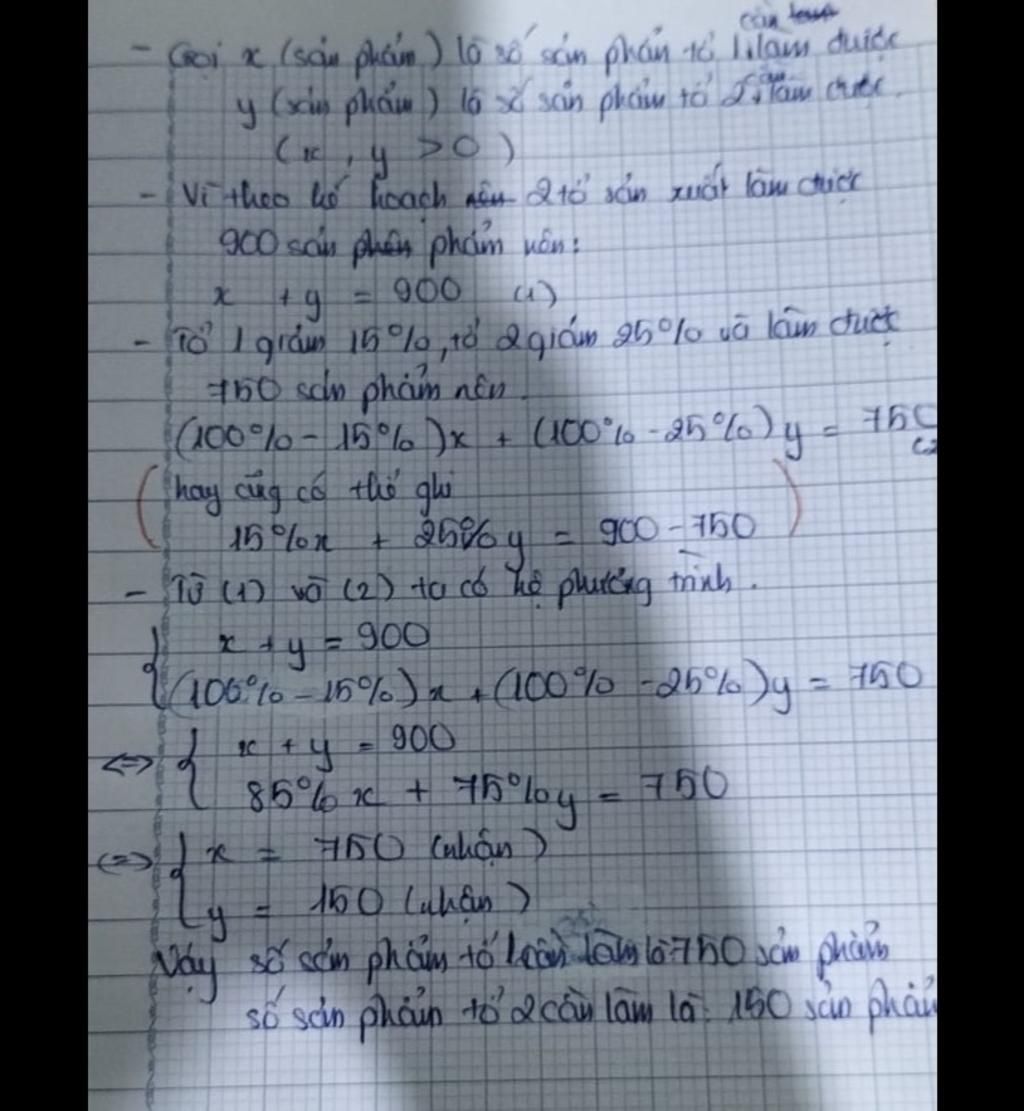 cần
- Gọi x (sản phẩm) là số sản phẩn tổ 1 làm được
y (sản phẩm) là số sản phẩm tổ 2 cần làm được.
(x, y > 0)
- Vì theo kế hoạch nên 2 tổ sản xuất làm được
900 sản phẩn phẩm nên:
x + y = 900 (1)
- Tổ 1 giảm 15%, tổ 2 giảm 25% và làm được
750 sản phẩm nên
(100% - 15%)x + (100% - 25%)y = 750
(2
(hay cũg có thể ghi
15%x + 25%y = 900 - 750)
- Từ (1) và (2) ta có hệ phương trình.
{ x + y = 900
(100% - 15%)x + (100% - 25%)y = 750
<=> { x + y = 900
85%x + 75%y = 750
<=> { x = 750 (nhận)
y = 150 (nhận)
Vậy số sản phẩm tổ 1 cần làm là 750 sản phẩm
số sản phẩn tổ 2 cần làm là: 150 sản phẩ